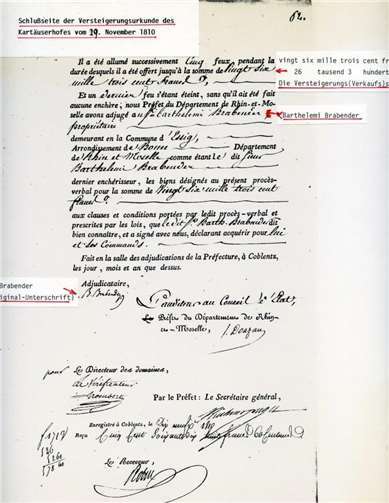 Schlußseite der Versteigerungsurkunde des
Kartäuserhofes vom 29. November 1810
Il a été allumé successivement Cinq feux, pendant la
durée desquels il a été offert jusqu'à la somme de Vingt Six
mille trois cent francs
vingt six mille trois cent fr
26 tausend 3 hundert
Die Versteigerung(Verkaufs)s
Et un dernier feu s'étant éteint, sans qu'il ait été fait
aucune enchère; nous Préfet du Département de Rhin-et-Mo-
selle avons adjugé au Sr Barthelemi Brabender
Barthelemi Brabender
propriétaire
demeurant en la Commune d'Essig,
Arrondissement de Bonn Département
de Rhin et Moselle comme étant le dit Sieur
Barthelemi Brabender
dernier enchérisseur, les biens désignés au présent procès-
verbal pour la somme de Vingt Six mille trois cent
francs
aux clauses et conditions portées par ledit procès-verbal et
prescrites par les lois, que ledit Sr Barth. Brabender dit
bien connaître, et a signé avec nous, déclarant acquérir pour lui
et les Commands.
Fait en la salle des adjudications de la Préfecture, à Coblentz,
les jour, mois et an que dessus.
Adjudicataire,
Brabender
iginal-Unterschrift)
B. Brabender
L'auditeur au Conseil d'Etat,
Le Préfet du Département de Rhin-
et-Moselle,
pour Le Directeur des domaines,
le Vérificateur
Par le Préfet: Le Secrétaire général,
Enregistré à Coblentz, le
Reçu Cinq Cent
Le Receveur